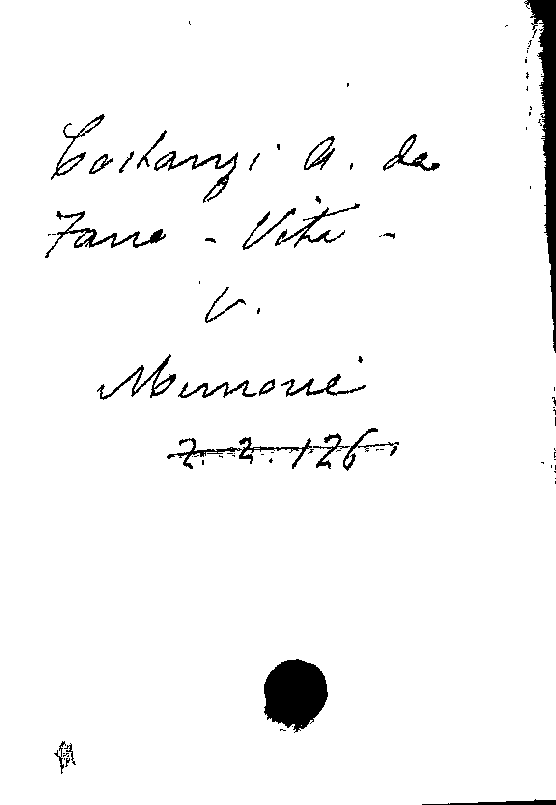 Costanzi A. da
Fano - Vita -
V.
Memorie
Z. 2. 126.